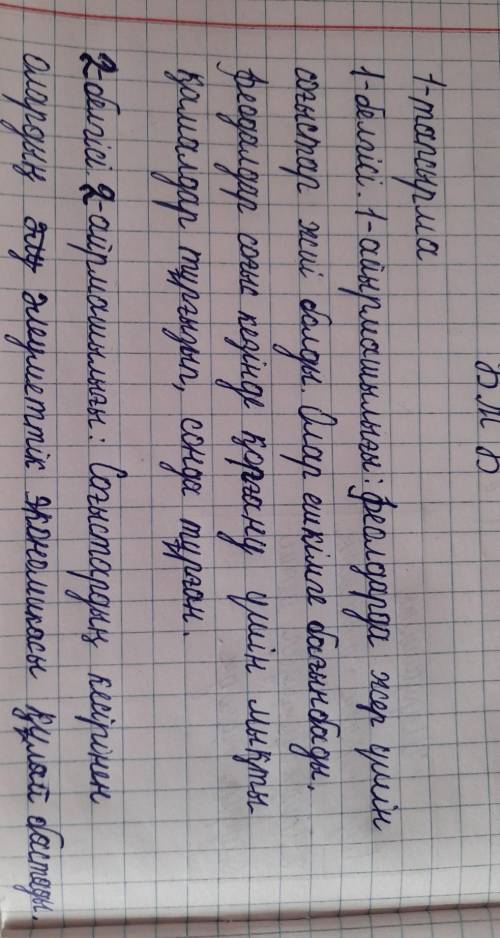 БМ Б
1-тапсырма
1-белгісі. 1-айырмашылығы: феолдарда жер үшін
соғыстар жиі болды. Олар ешкімге бағынбады.
Феодалдар соғыс кезінде қорғану үшін мықты
қамалдар тұрғызып, сонда тұрған.
2-белгісі. 2-айрмашылығы: Соғыстардың кесірінен
олардың әлеуметтік экономикасы құлай бастады.